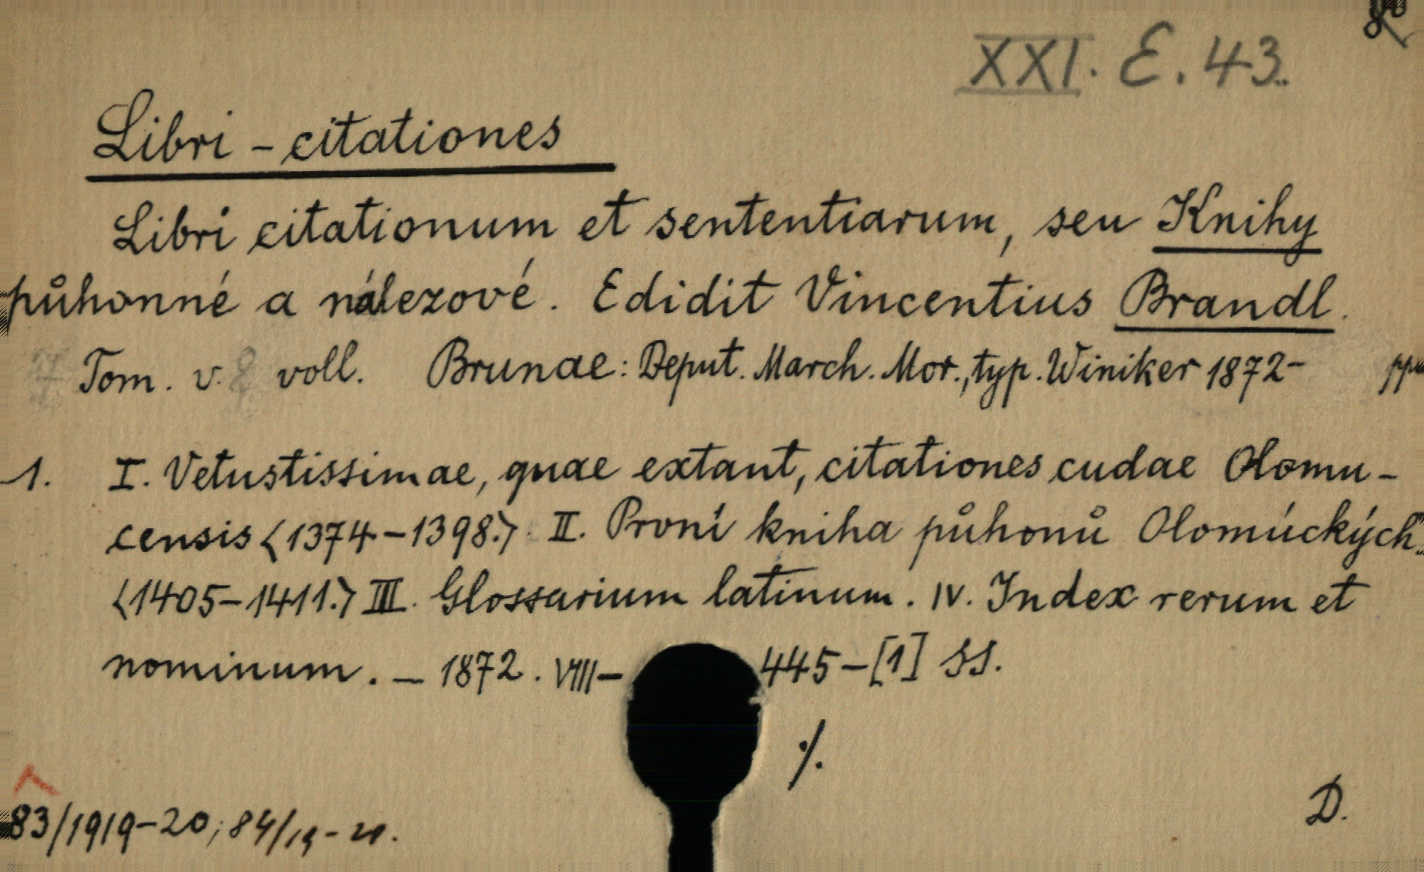 XXI. E. 43.
Libri - citationes
Libri citationum et sententiarum, seu Knihy
půhonné a nálezové. Edidit Vincentius Brandl.
7 Tom. v. 8 voll. Brunae: Deput. March. Mor., typ. Winiker 1872-
1. I. Vetustissimae, quae extant, citationes cudae Olomu-
censis <1374-1398.> II. První kniha půhonů Olomúckých.
<1405-1411.> III. Glossarium latinum. IV. Index rerum et
nominum. - 1872. VIII- 445-[1] SS.
./.
D.
83/1919-20; 84/19-20.